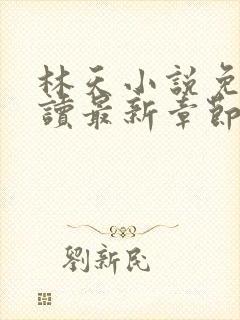 林天小説免
讀最新章節
劉新民